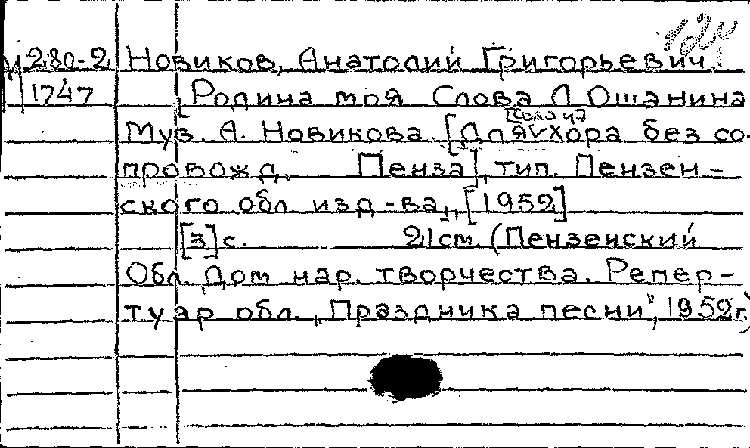 124
У 280-2 Новиков, Анатолий Григорьевич.
1747 Родина моя Слова Л Ошанина
[соло и]
Муз. А. Новикова. [Для хора без со-
провожд. Пенза], тип. Пензен-
ского обл. изд-ва, [1952]
[3] с. 21 см. (Пензенский
Обл. Дом нар. творчества. Репер-
туар обл. „Праздника песни", 1952г.)